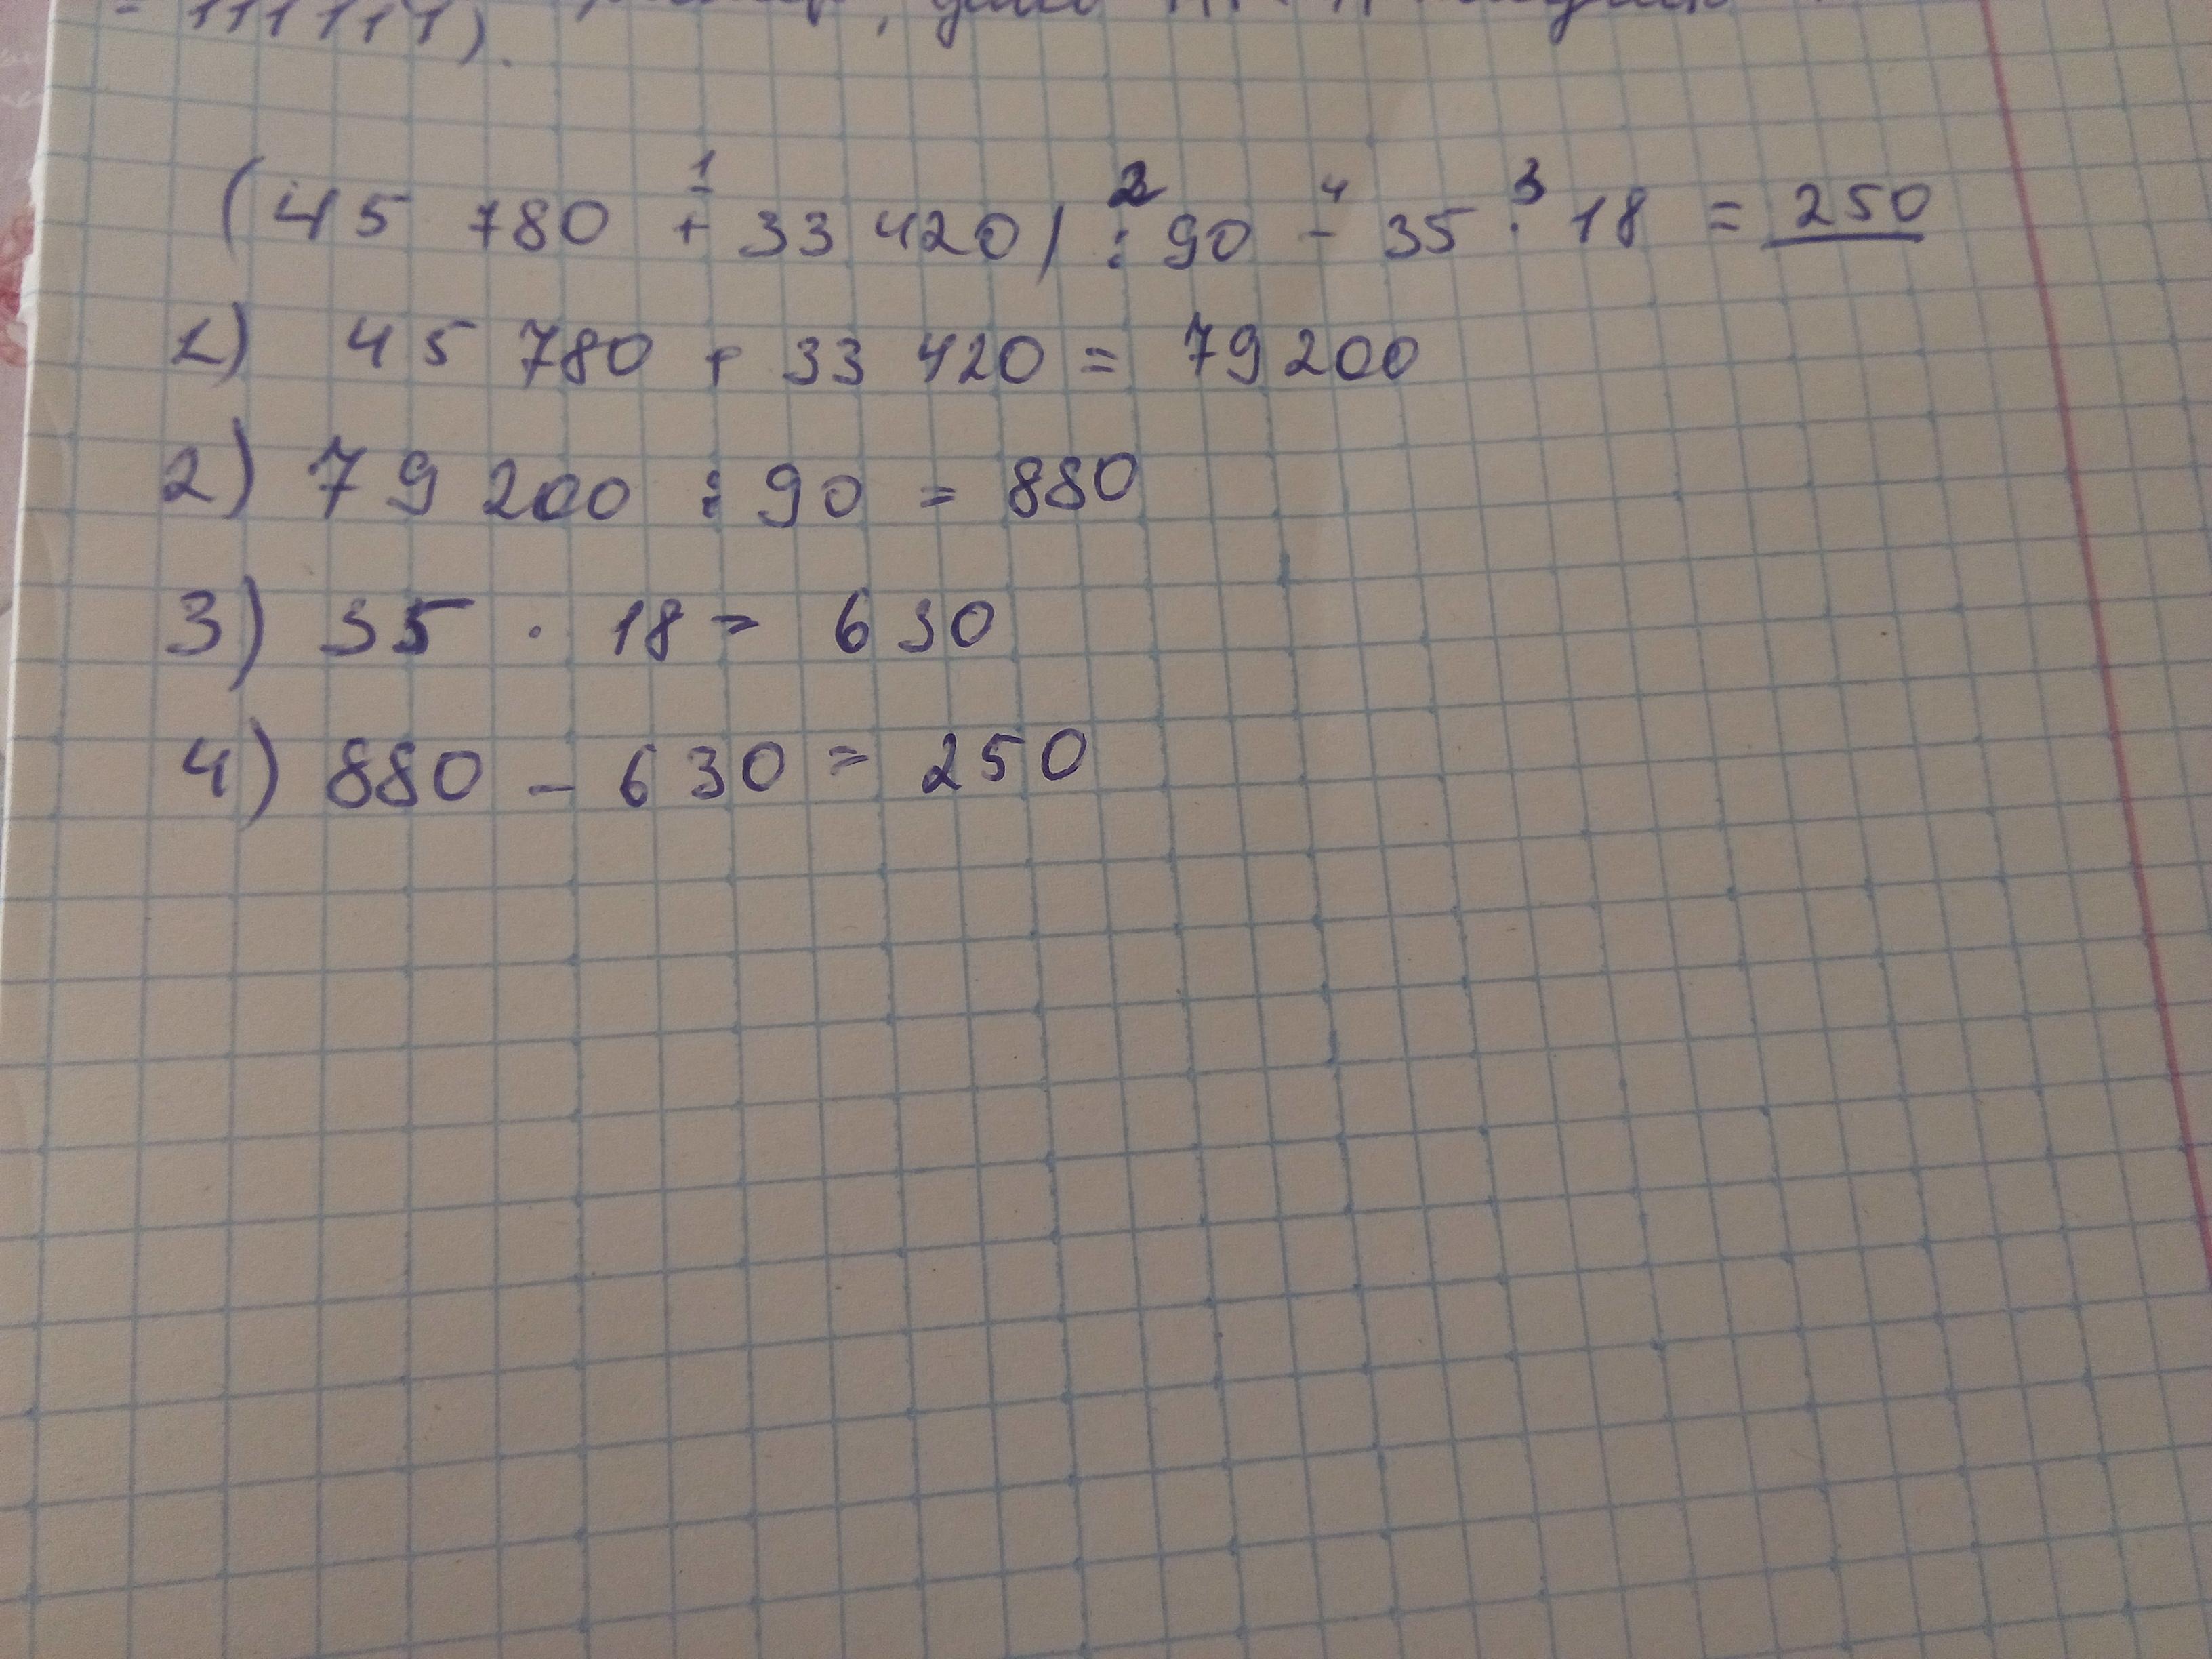 = 111 111).
(45 780 + 33 420) : 90 - 35 · 18 = 250
1 2 4 3
1) 45 780 + 33 420 = 79 200
2) 79 200 : 90 = 880
3) 35 · 18 = 630
4) 880 - 630 = 250